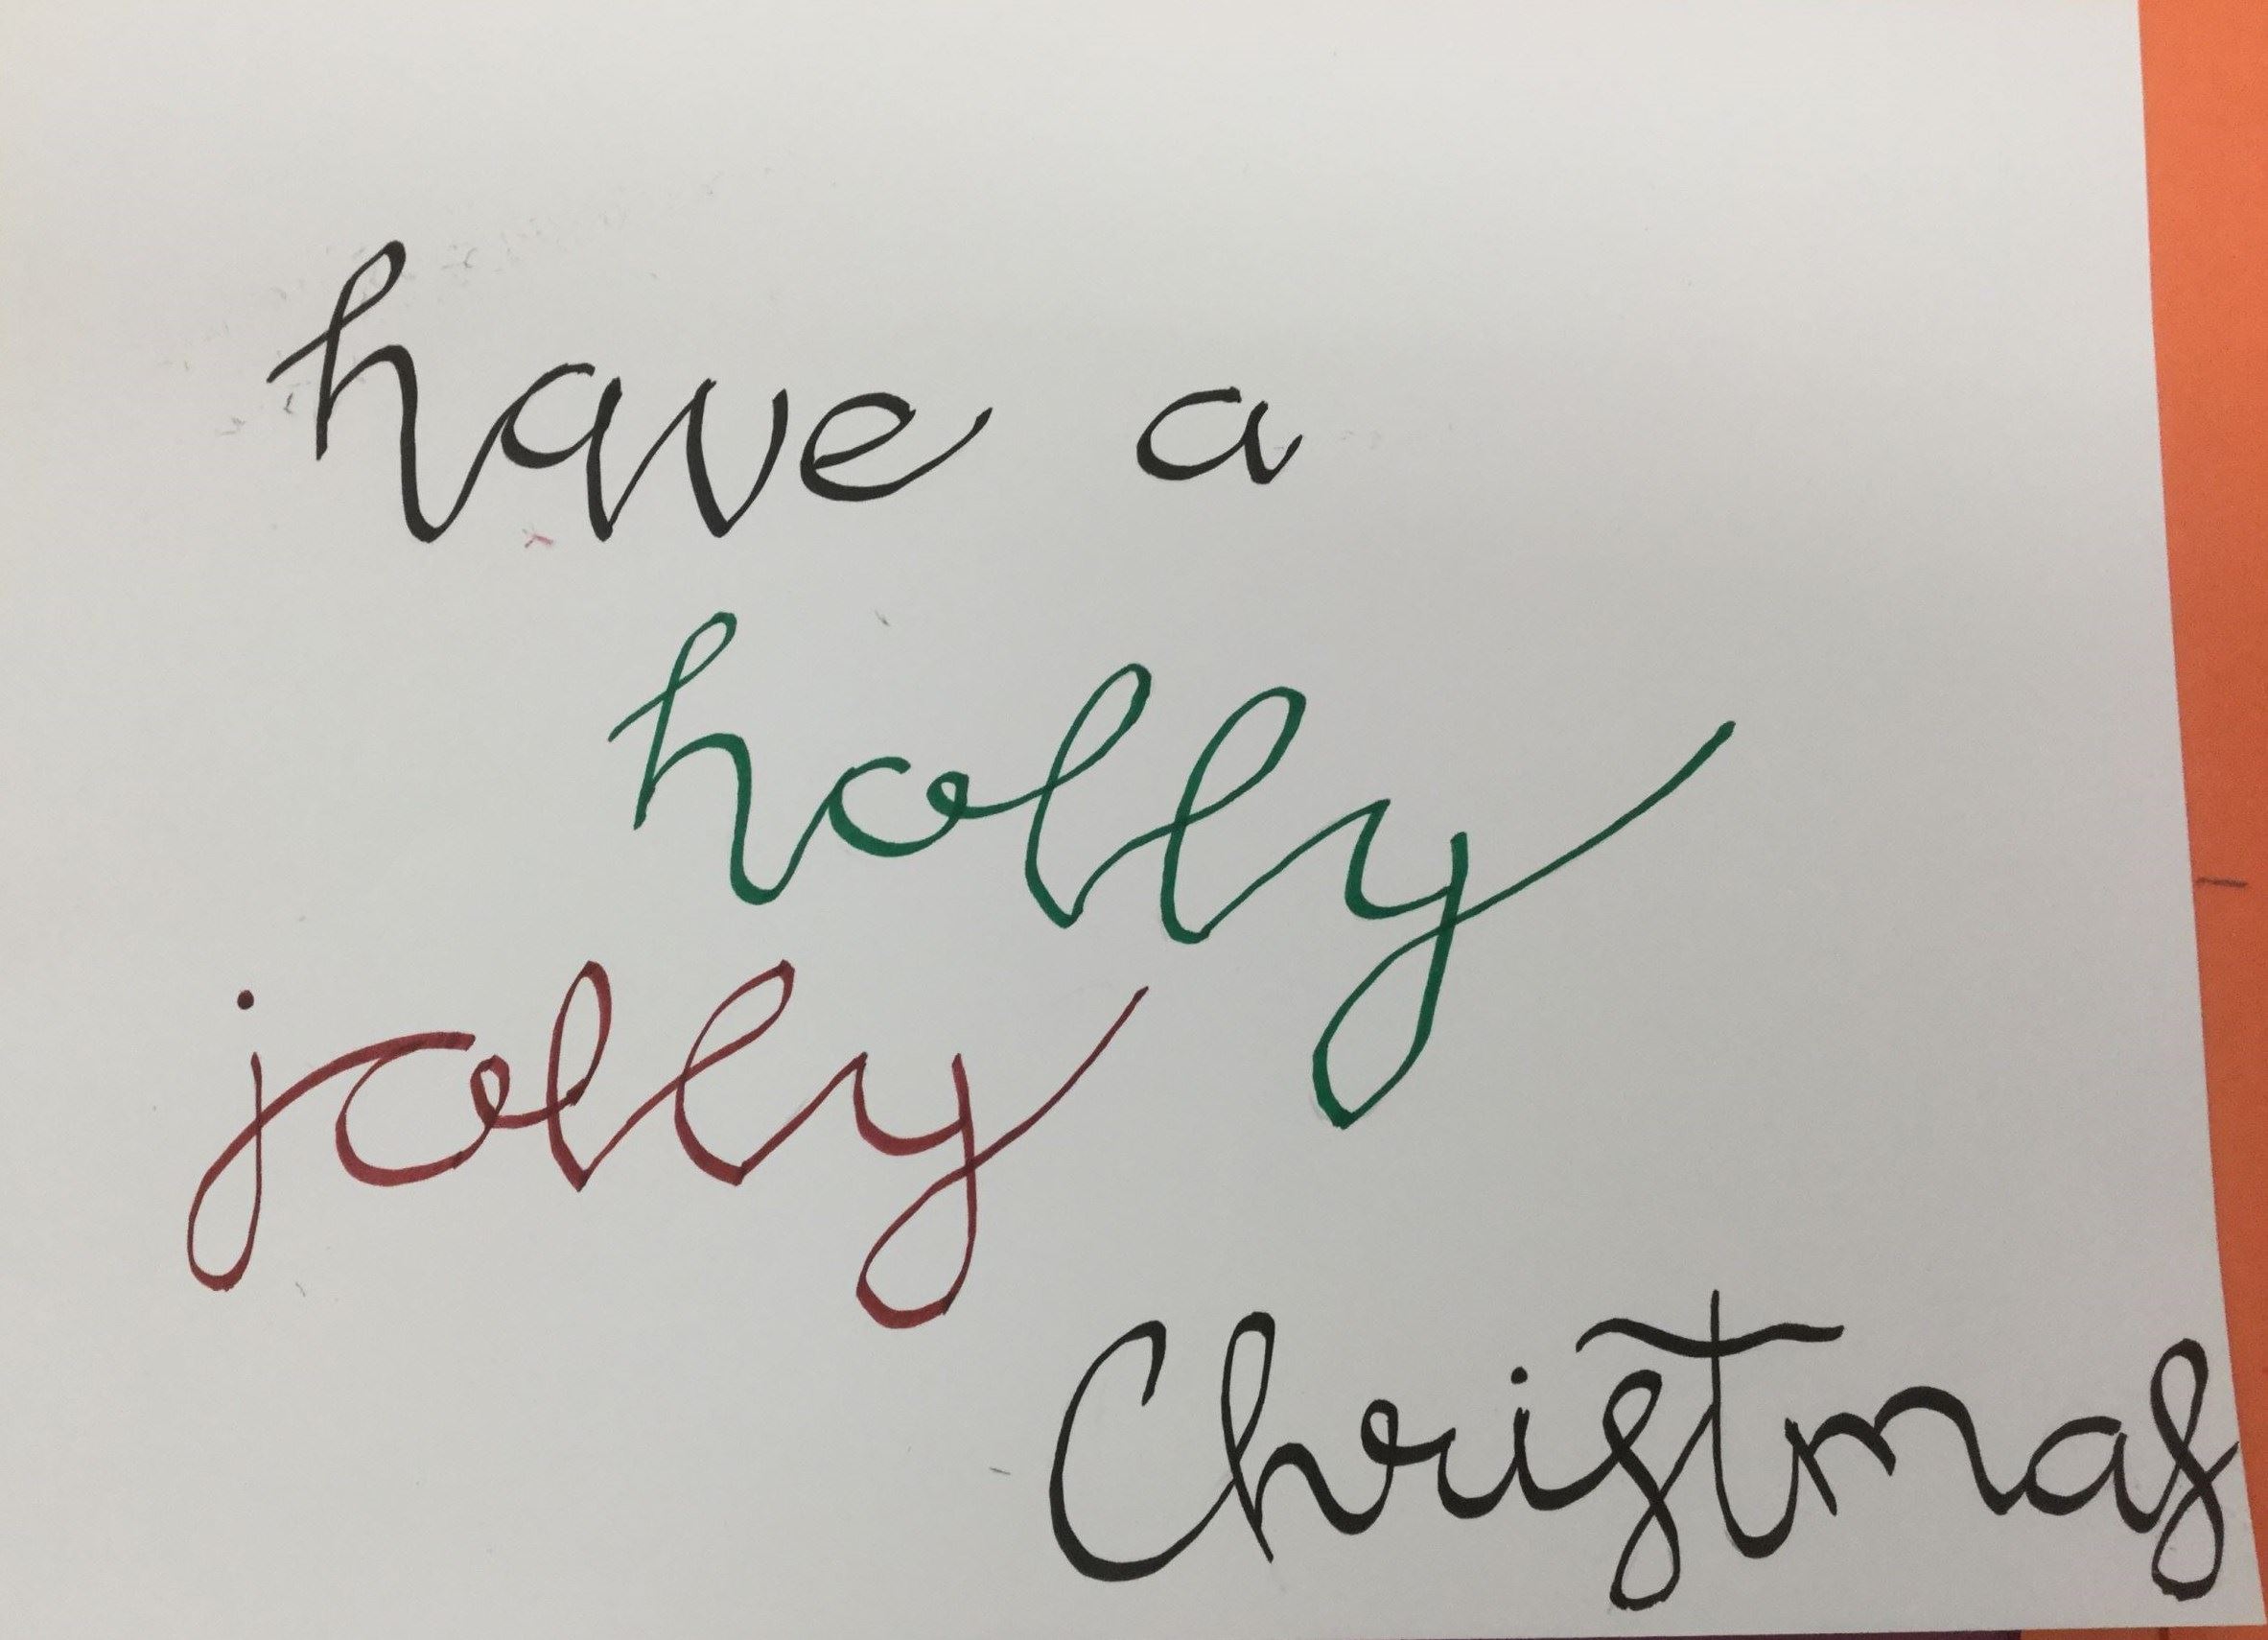 have a
holly
jolly
Christmas